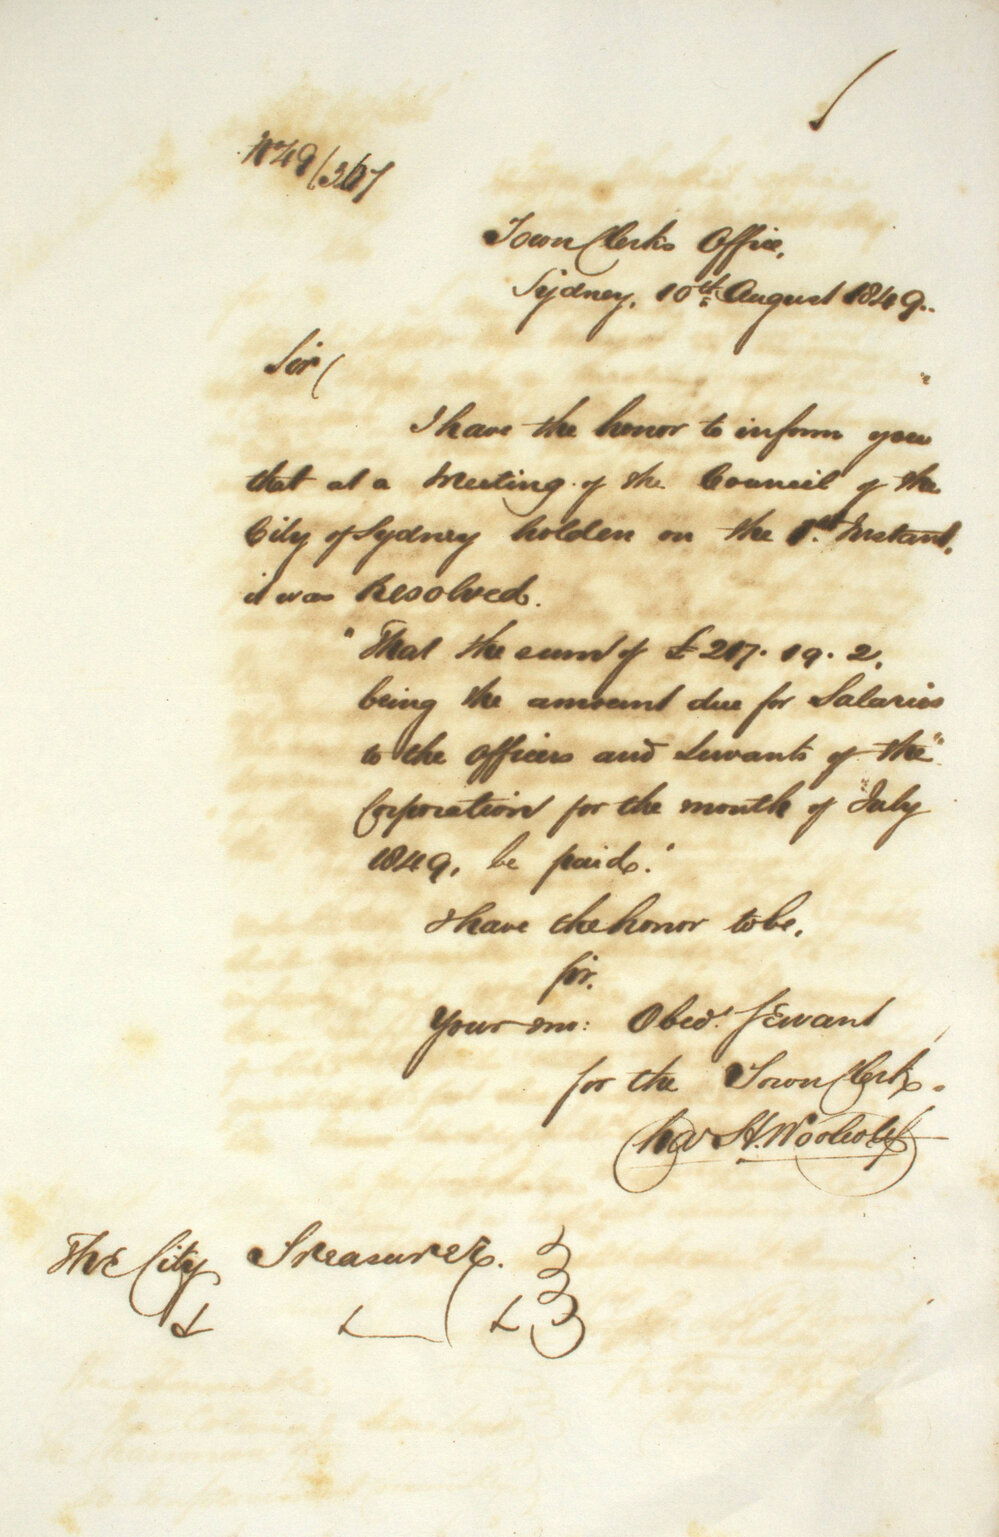 No 49/367
Town Clerks Office,
Sydney, 10th August 1849.
Sir
I have the honor to inform you
that at a Meeting of the Council of the
City of Sydney holden on the Instant,
it was Resolved.
"That the sum of £217. 19. 2,
being the amount due for Salaries
to the Officers and Servants of the
Corporation for the month of July
1849, be paid."
I have the honor to be,
Sir,
Your Obedt. Servant
for the Town Clerk,
Chas H. Woolcott
The City Treasurer.